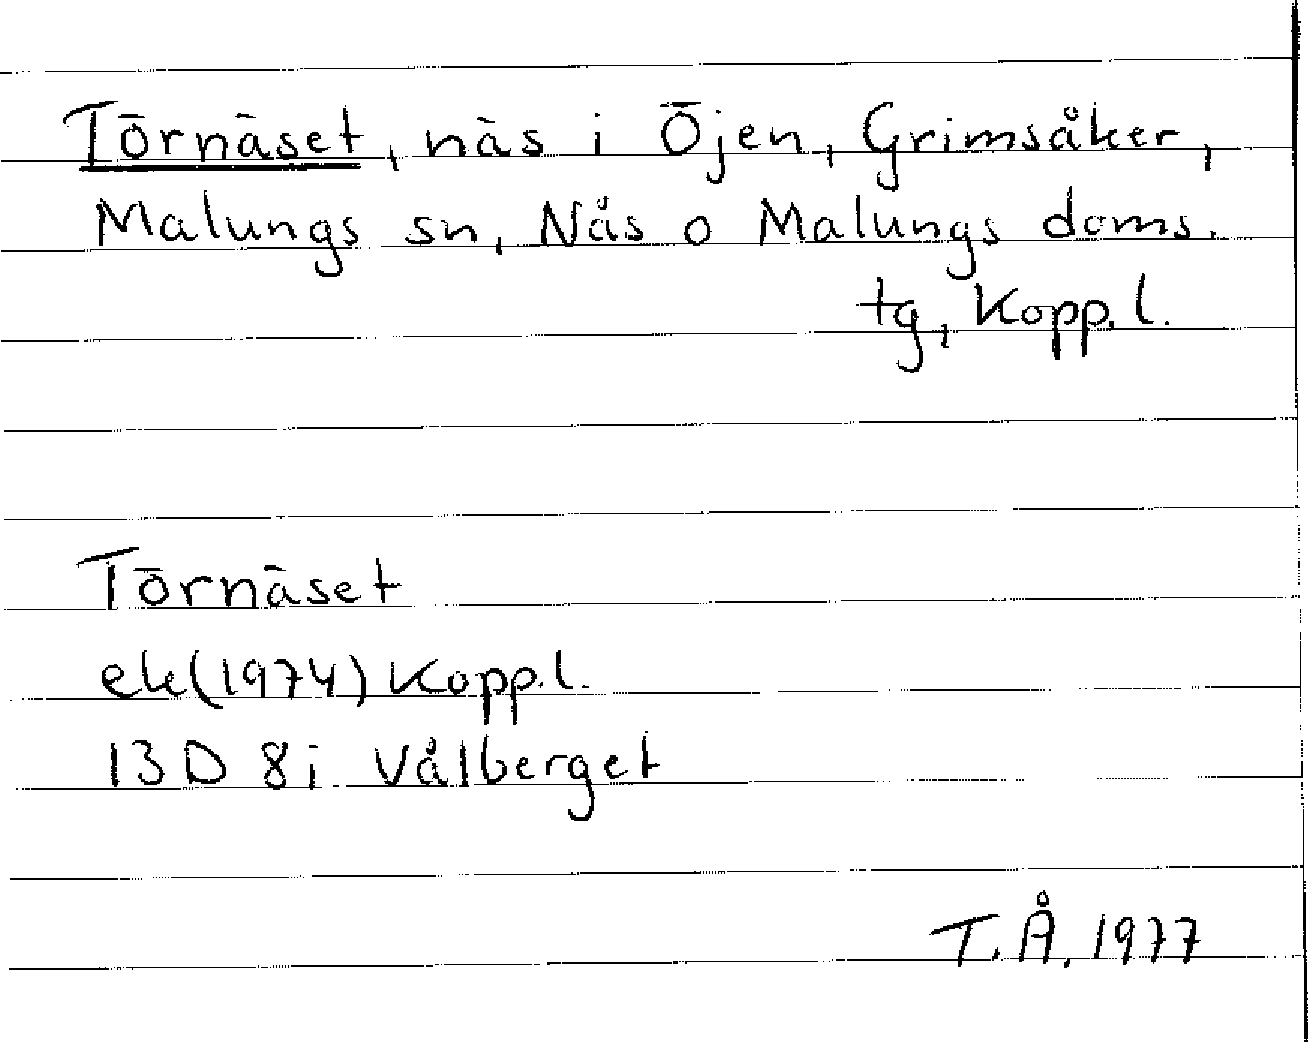 Törnäset, näs i Öjen, Grimsåker,
Malungs sn, Nås o Malungs doms.
tg, Kopp. l.
Törnäset
ek(1974) Kopp.l.
13D 8i Vålberget
T.Å. 1977